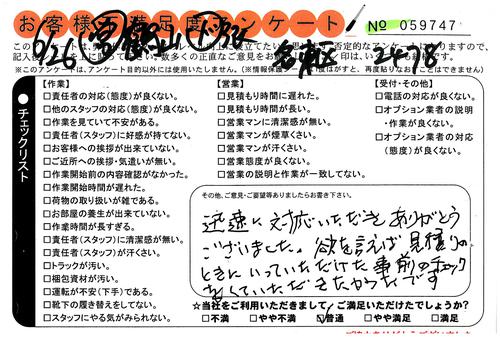 お客様の満足度アンケート！
No 059747
6/26
2478
※このアンケートは、アンケート目的以外には使用いたしません。
チェックリスト
【作業】
□責任者の対応（態度）が良くない。
□他のスタッフの対応（態度）が良くない。
□作業を見ていて不安がある。
□責任者（スタッフ）に好感が持てない。
□お客様への挨拶が出来ていない。
□ご近所への挨拶・気遣いが無い。
□作業開始前の内容確認がなかった。
□作業開始時間が遅れた。
□荷物の取り扱いが雑である。
□お部屋の養生が出来ていない。
□作業時間が長すぎる。
□責任者（スタッフ）に清潔感が無い。
□責任者（スタッフ）が汗くさい。
□トラックが汚い。
□梱包資材が汚い。
□運転が不安（下手）である。
□靴下の履き替えをしてない。
□スタッフにやる気がみられない。
【営業】
□見積もり時間に遅れた。
□見積もり時間が長い。
□営業マンに清潔感が無い。
□営業マンが煙草くさい。
□営業マンが汗くさい。
□営業態度が良くない。
□営業の説明と作業が一致してない。
【受付・その他】
□電話の対応が良くない。
□オプション業者の説明
・作業が良くない。
□オプション業者の対応
（態度）が良くない。
その他、ご意見・ご要望等ありましたらお書き下さい。
迅速に対応いただきありがとう
ございました。欲を言えば見積りの
ときにいっていただけた事前のチェック
をしていただきたかったです
☆当社をご利用いただきまして、ご満足いただけたでしょうか？
□不満 □やや不満 □普通 □やや満足 □満足